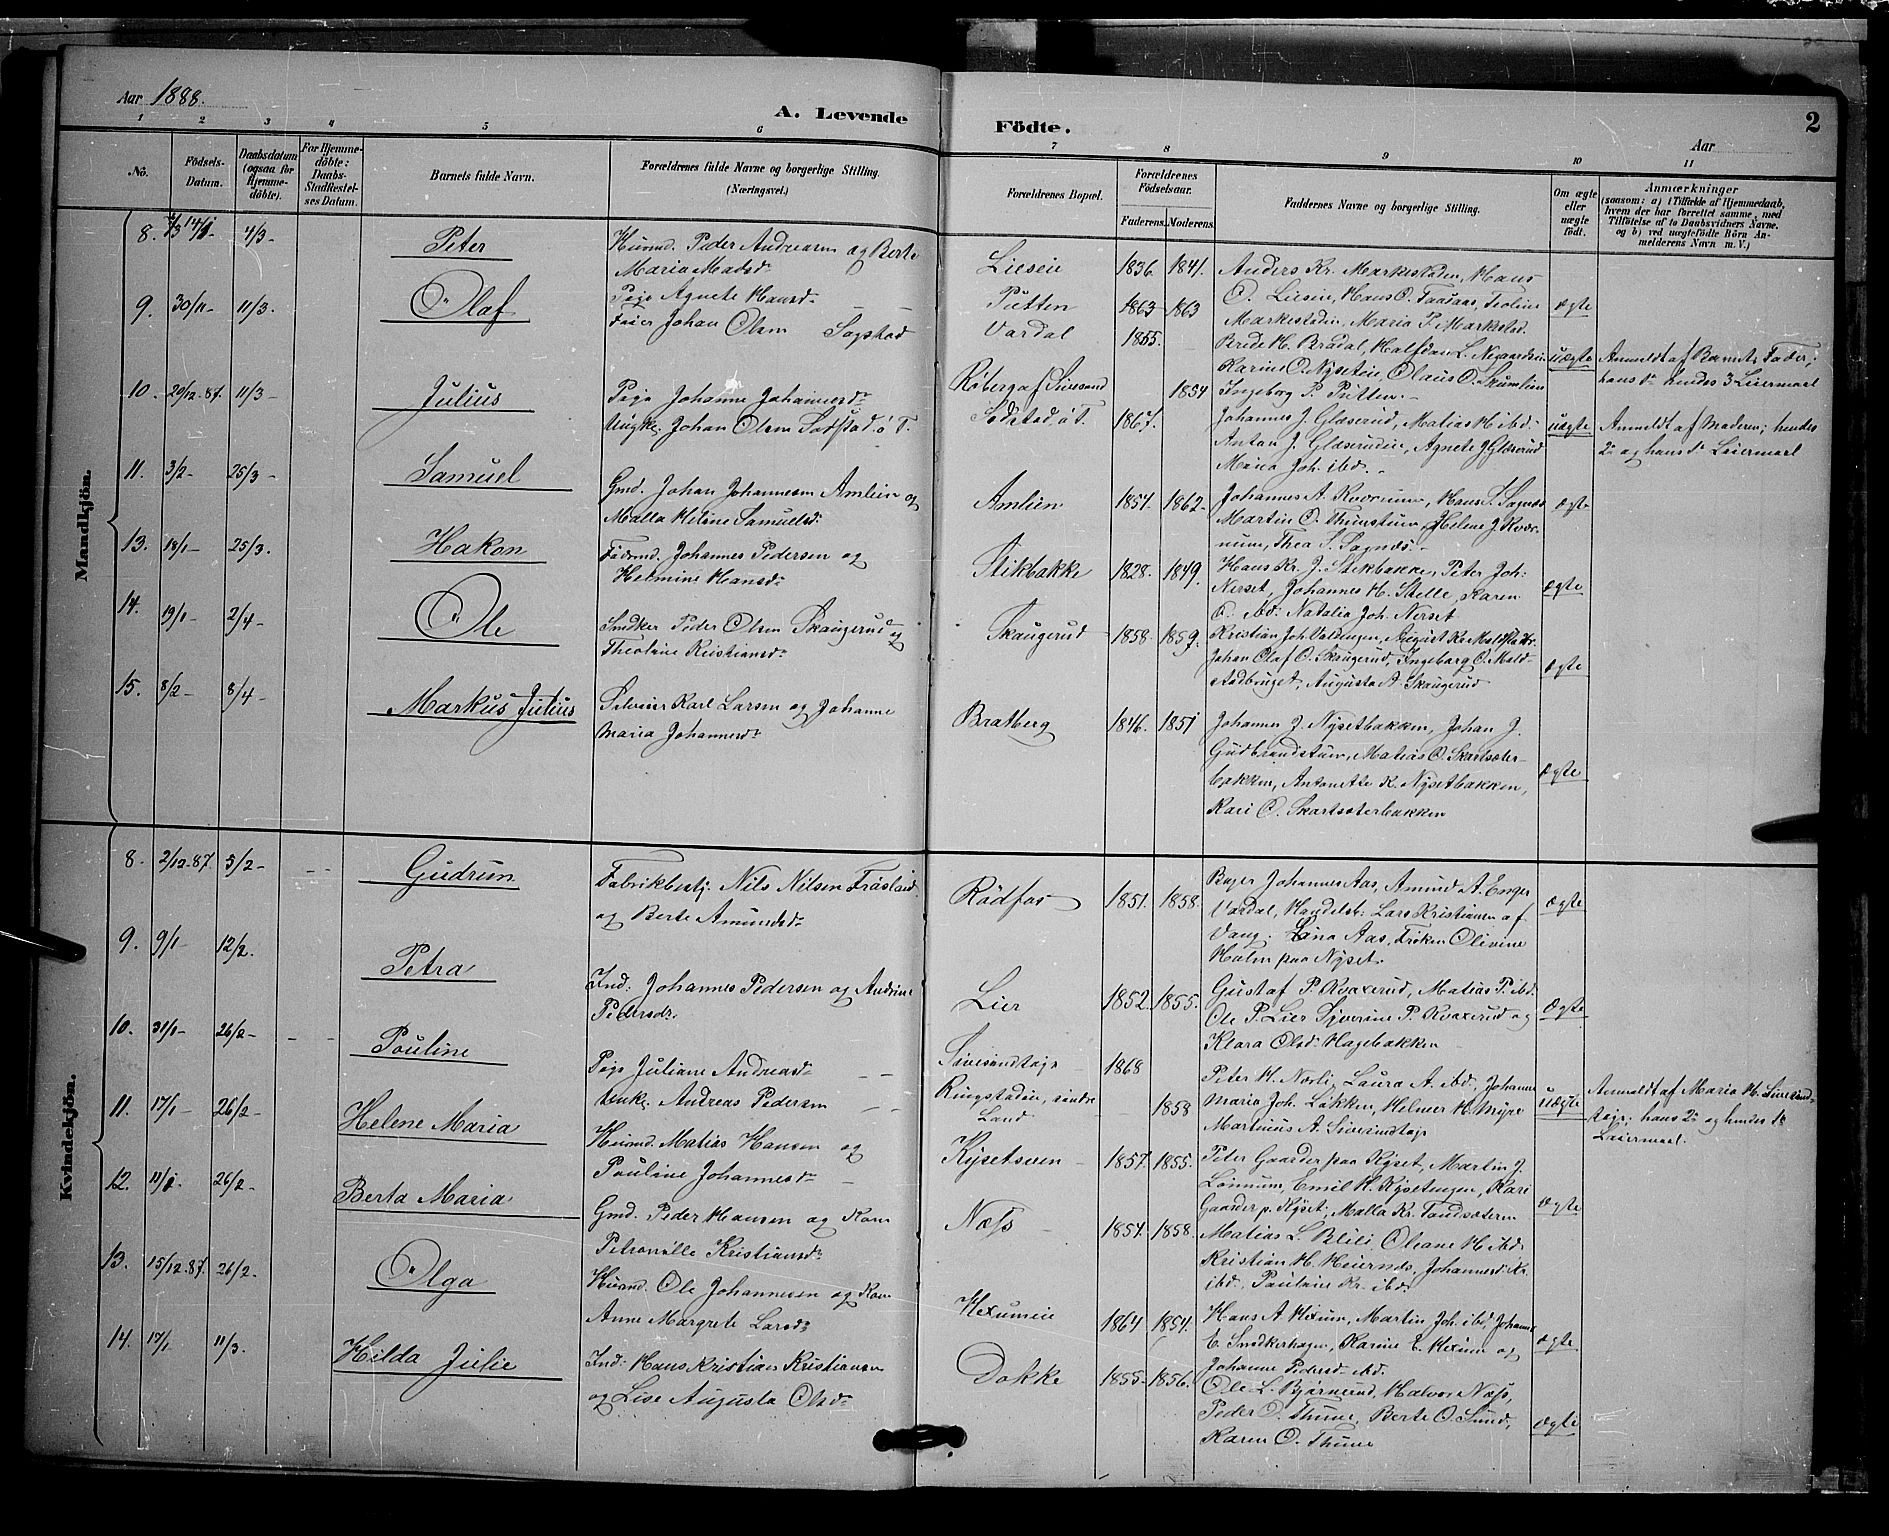 Aar 1888.
A. Levende Födte.
Aar
2
1 2 3 4 5 6 7 8 9 10 11
No.
Födsels-Datum.
Daabsdatum (ogsaa for Hjemme-döbte).
For Hjemme-döbte: Daabs-Stadfæstel-ses Datum.
Barnets fulde Navn.
Forældrenes fulde Navne og borgerlige Stilling.
(Næringsvei.)
Forældrenes Bopæl.
Forældrenes Födselsaar.
Faderens. Moderens.
Faddernes Navne og borgerlige Stilling.
Om ægte eller uægte födt.
Anmærkninger
(saasom: a) i Tilfælde af Hjemmedaab, hvem der har forrettet samme, med Tilföielse af to Daabsvidners Navne. og b) ved uægtefödte Börn An-melderens Navn m. V.)
Mandkjön.
8. 4/3 Peter
Husmd. Peder Andreasen og Berte
Maria Madsdr
Lieseie 1836. 1841.
Anders Kr. Markestaden, Hans
O. Liesen, Hans O. Faasaas, Teoline
Markestaden, Maria P. Markstad.
ægte
9. 30/11- 11/3. Olaf
Pige Agnete Hansdr
Faier Johan Olsen Sogstad
Pütten 1863- 1863
Vardal 1855.
Brede H. Bradal, Halfdan L. Nygaardseie
Karine O. Nyseteie, Olaus O. Skumlien
Ingeborg P. Pütten.
uægte
Anmeldt af Barnets Fader;
hans 1ste hendes 3 Leiermaal
10. 29/12.87. 11/3- Julius
Pige Johanne Johannesdr
Ungk. Johan Olsen Sodstad ö T.
Röberg af Sivesind 1854
Sodstad ö T. 1867.
Johannes J. Glæserud, Matias H. ibd.
Anton J. Glæserudeie, Agnete J Glæserud
Maria Joh. ibd.
uægte
Anmeldt af Moderen; hendes
2den og hans 1ste Leiermaal
11. 3/2- 25/3- Samuel
Gmd. Johan Johannesen Amlien og
Malla Helene Samuelsdr
Amlien 1857- 1862-
Johannes A. Kværnum, Hans S. Sognes
Martin O. Thunstuen, Helene J. Kvær-
num, Thea S. Sognes.
ægte
13. 18/1- 25/3. Hakon
Födrmd. Johannes Pedersen og
Helmine Hansdr
Stikbakke 1828. 1849.
Hans Kr. J. Stikbakke, Peter Joh.
Nerset, Johannes H. Stelle, Karen
O. ibd. Natalia Joh. Nerset
ægte
14. 19/1- 2/4- Ole
Snedker Peder Olsen Skaugerud og
Theoline Kristiansdr
Skaugerud 1858. 1859.
Kristian Joh. Valdengen, August Kr. Moldstabr.
Johan Olaf O. Skaugerud, Ingeborg O. Mold-
stadbruget, Augusta A. Skaugerud
ægte
15. 8/2- 8/4- Markus Julius
Selveier Karl Larsen og Johanne
Maria Johannesdr
Bratberg 1846. 1851
Johannes J. Nysetbakken, Johan J.
Gudbrandstuen, Matias O. Skartsæter-
bakken, Antonette K. Nysetbakken,
Kari O. Skartsæterbakken
ægte
Kvindekjön.
8. 2/12.87. 5/2- Gudrun
Fabrikbestj. Nils Nilsen Frösland
og Berte Amundsdr
Rödfos 1851. 1858.
Bager Johannes Aas, Amund A. Enger
Vardal, Handelsb. Lars Kristiansen af
Vang. Lina Aas, Fröken Olivine
Holm paa Nyset.
ægte
9. 9/1 12/2. Petra
Ind. Johannes Pedersen og Andrine
Pedersdr.
Lier 1852. 1855.
Gustaf P. Kvaxerud, Matias P. ibd.
Ole P. Lier Syverine P. Kvaxerud og
Klara Olsdr Hagebakken
ægte
10. 31/1- 26/2- Pauline
Pige Juliane Andreasdr
Unk. Andreas Pedersen
Sivesindtajr 1868
Ringstadeie, söndre 1858
Land
Peter H. Nerli, Laura A. ibd., Johanne
Maria Joh. Lökken, Helmer H. Myre
Martinus A. Sivesindtajr
uægte
Anmeldt af Maria H. Sivesind-
tajr; hans 2den og hendes 1ste
Leiermaal.
11. 17/1- 26/2- Helene Maria
Husmd. Matias Hansen og
Pauline Johannesdr
Kysetsveen 1857. 1855.
Peter Gaarder paa Kyset, Martin J.
Lönnum, Emil H. Kysetengen, Kari
Gaarder p. Kyset, Malla Kr. Tandsætern
ægte
12. 11/1- 26/2- Berta Maria
Gmd. Peder Hansen og Kone
Petronille Kristiansdr
Næss 1854. 1858.
Matias L. Blili, Oleane H. ibd.
Kristian H. Heiernes, Johannes Kr.
ibd., Pauline Kr. ibd.
13. 15/12.87. 26/2. Olga
Husmd. Ole Johannesen og Kone
Anne Margrete Larsdr
Hexumeie 1864 1854.
Hans A. Hexum, Martin Joh. ibd., Johanne
E. Smedkerhagen, Karine E. Hexum og
Johanne Pedersdr ibd.
ægte
14. 17/1 11/3. Hilda Julie
Ind. Hans Kristian Kristiansen
og Lise Augusta Olsdr
Dokke 1855- 1856.
Ole L. Björnerud, Halvor Næss,
Peder O. Thune, Berte O. Lund,
Karen O. Thune
ægte